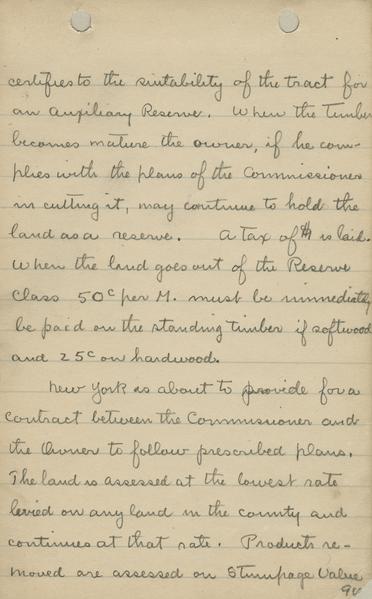 certifies to the suitability of the tract for
an Auxiliary Reserve. When the timber
becomes mature the owner, if he com-
plies with the plans of the Commissioner
in cutting it, may continue to hold the
land as a reserve. A Tax of is laid.
When the land goes out of the Reserve
Class 50c per M. must be immediately
be paid on the standing timber if softwood
and 25c on hardwood.
New York is about to provide for a
contract between the Commissioner and
the Owner to follow prescribed plans.
The land is assessed at the lowest rate
levied on any land in the county and
continues at that rate. Products re-
moved are assessed on Stumpage Value